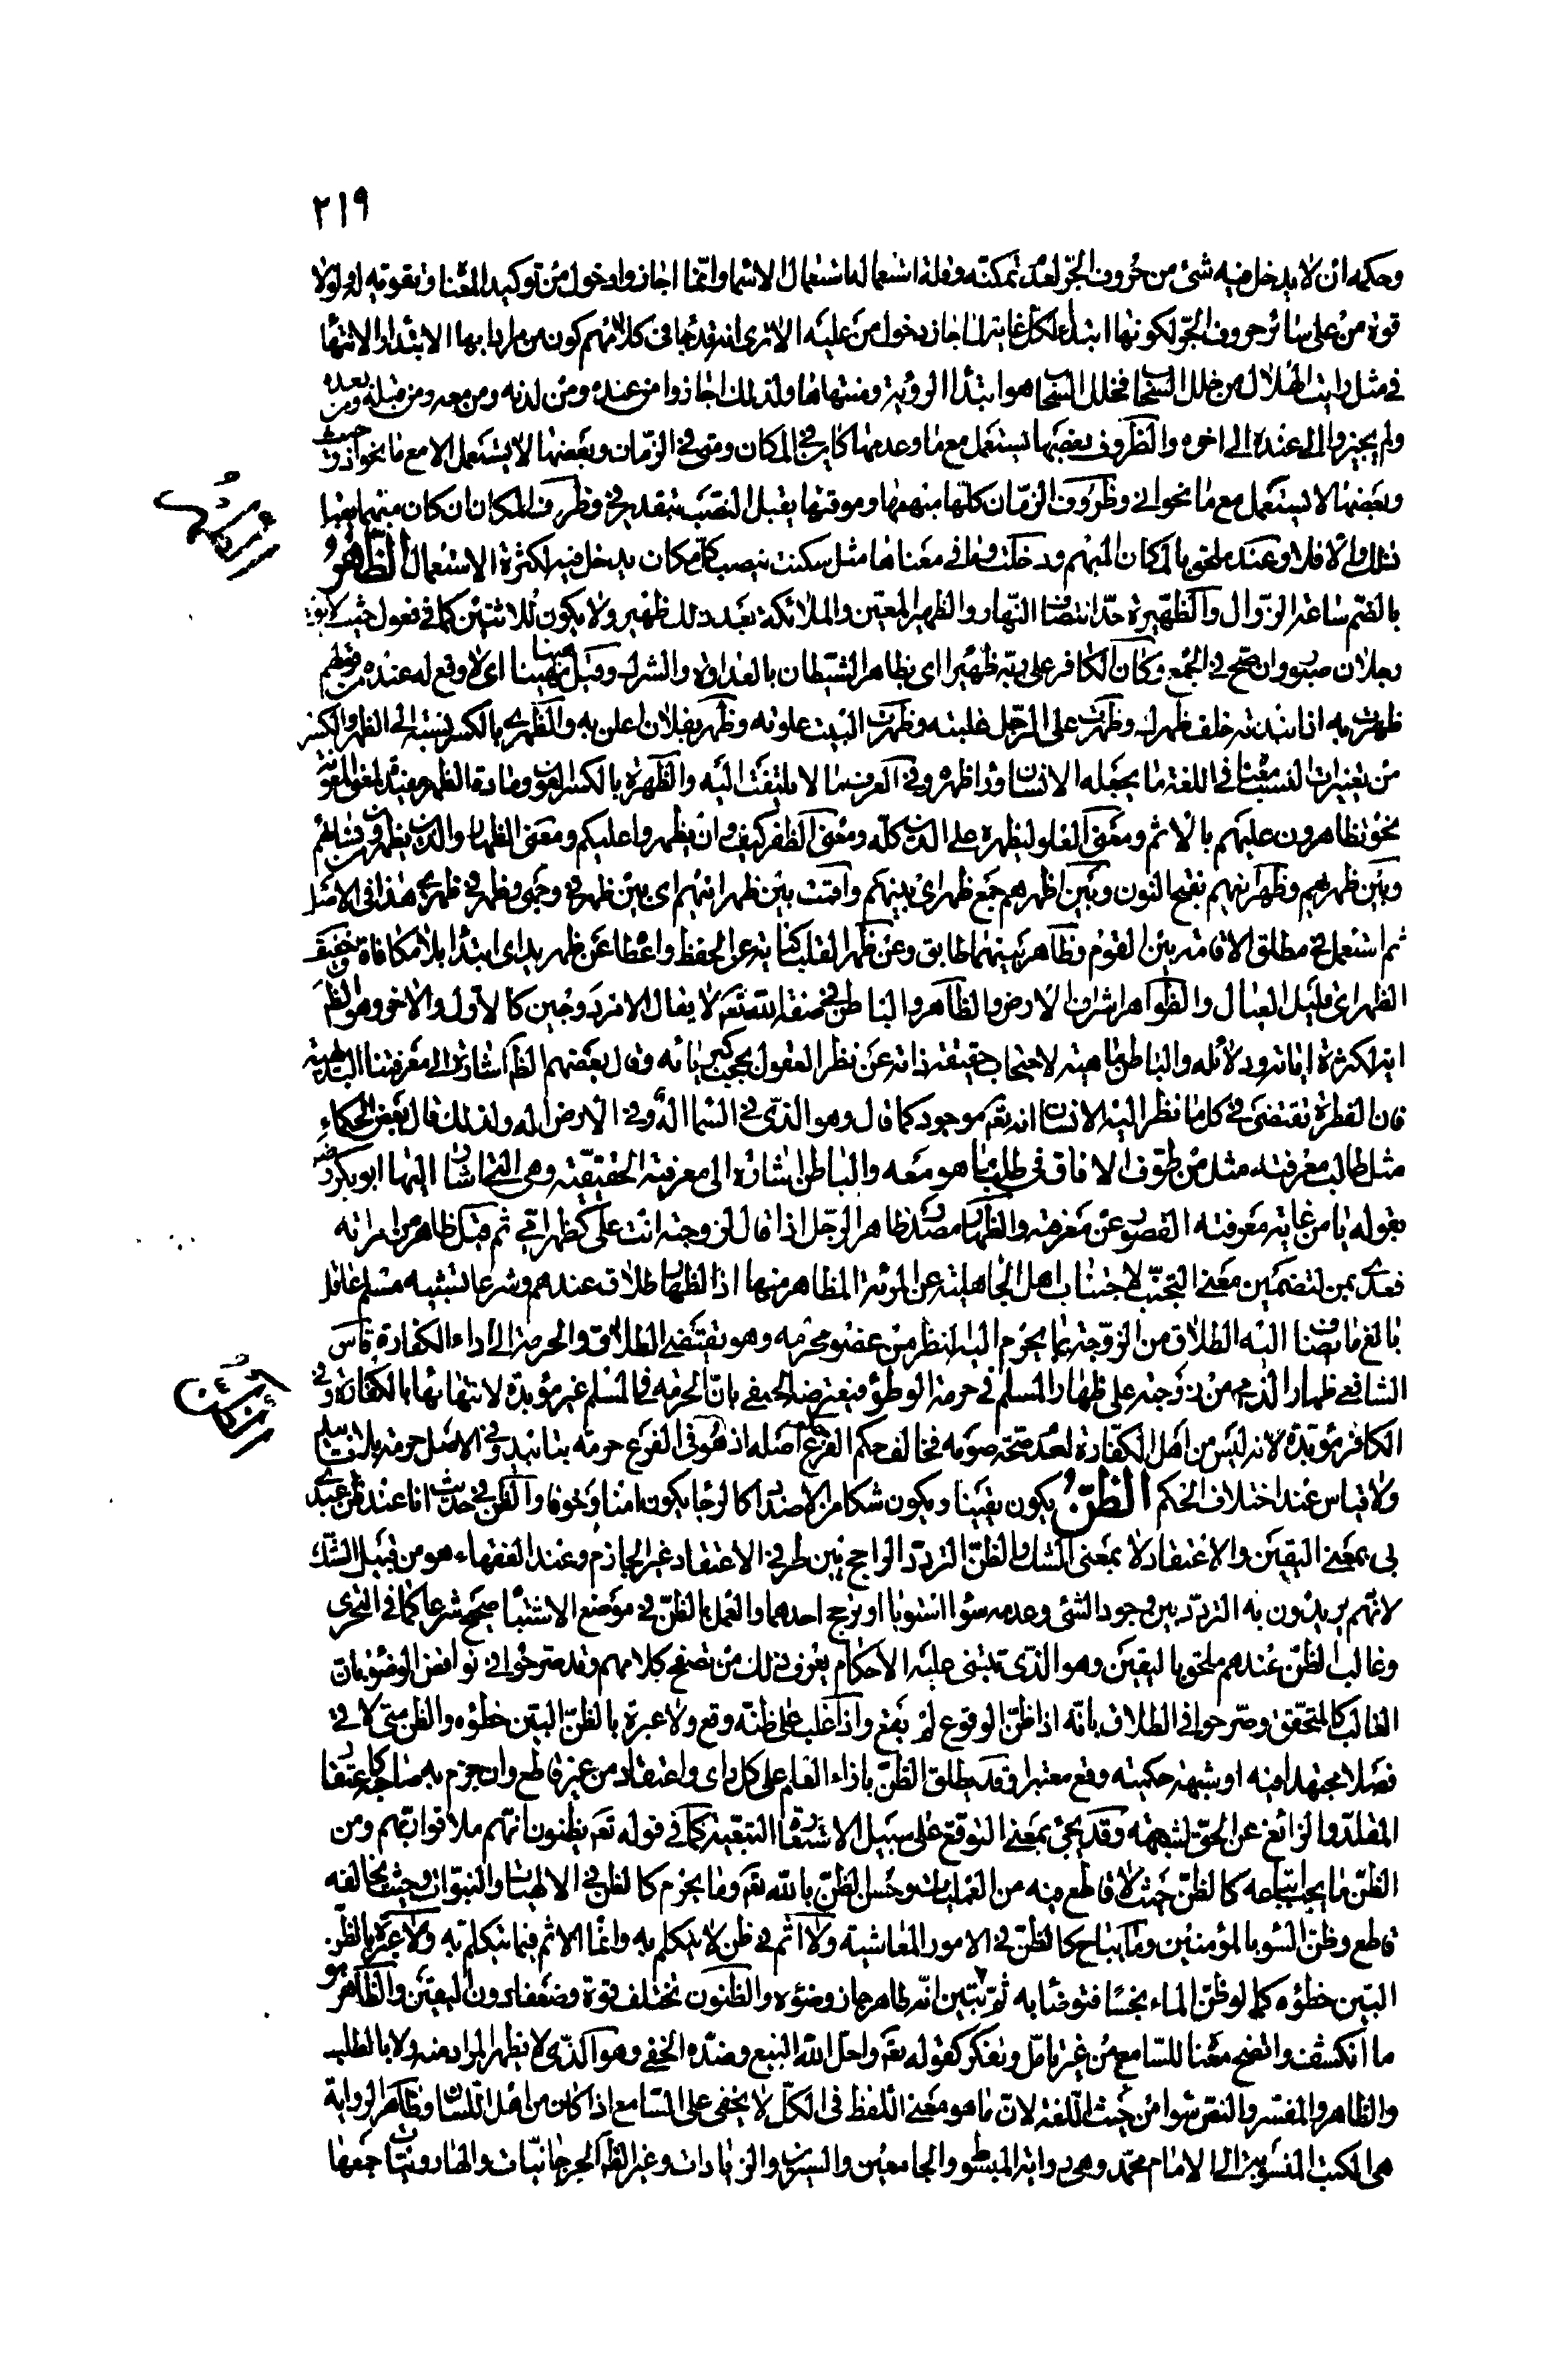 ٢١٩
وحكمه ان لا يدخل فيه شئ من حروف الجر لعدم تمكنه وقلة استعماله استعمال الاسما وانما اجازوا دخول من توكيدا لمعناه وتقوية له ولولا
قوة من على سائر حروف الجر لكونها ابتداء لكل غاية لما جاز دخول من عليه الا ترى انه قد جاء في كلامهم كون من مرادا بها الابتداء والانتهاء
في مثل رايت الهلال من خلل السحاب فخلل السحاب هو ابتدا الروية ومنتهاها ولذلك اجازوا من عنده ومن لدنه ومن معه ومن قبله ومن بعده
ولم يجيزوا الى عنده الى اخره والظروف بعضها يستعمل مع ما وعدمها كاين في المكان ومتى في الزمان وبعضها لا يستعمل الا مع ما نحو اذ وحيث
وبعضها لا يستعمل مع ما نحو انى وظروف الزمان كلها مبهمها وموقتها يقبل النصب بتقدير في وظرف المكان ان كان مبهما يقبل
ذلك والا فلا وعند ملحق بالمكان المبهم ودخلت وما في معناها مثل سكنت ينصب كل مكان يدخل فيه لكثرة الاستعمال الظهور
بالضم ساعة الزوال والظهيرة حد انتصاف النهار والظهير المعين والملائكة بعد ذلك ظهير ولا يكون للاثنين كما في فعول حيث لا يق
رجلان صبور وان صح في الجمع وكان الكافر على ربه ظهيرا اى يظاهر الشيطان بالعداوة والشرك وقيل هينا مهينا اى لا وقع له عنده من قولهم
ظهرت به اذا نبذته خلف ظهرك وظهرت على الرجل غلبته وظهرت البيت علوته وظهر بفلان اعلن به والظهرى بالكسر نسبة الى الظهر والكسر
من تغييرات النسب معناه في اللغة ما يجعله الانسان وراظهره وفي العرف ما لا يلتفت اليه والظهرة بالكسر العون ومادة الظهر يفيد معنى المعونة
نحو تظاهرون عليهم بالاثم ومعنى العلو ليظهره على الدين كله ومعنى الظفر كيف وان يظهروا عليكم ومعنى الظهار والذين يظهرون من نسائهم
وبين ظهريهم وظهرانيهم بفتح النون وبين اظهرهم جمع ظهر اى بينهم واقمت بين ظهرانيهم اى بين ظهر في وجهى وظهر في ظهرى هذا في الاصل
ثم استعمل في مطلق الاقامة بين القوم وظاهر بينهما طابق وعن ظهر القلب كناية عن الحفظ واعطا عن ظهر يد اى ابتدا بلا مكافاة وخفيف
الظهر اى قليل العيال والظواهر اشراف الارض والظاهر والباطن في صفة الله تعم لا يقال الا مزدوجين كالاول والاخر وهو الظم
ايته لكثرة اياته ودلائله والباطن ماهيته لاحتجاب حقيقة ذاته عن نظر العقول بحجب كبريائه وقال بعضهم الظم اشارة الى معرفتنا البديهية
فان الفطرة تقتضى في كل ما نظر اليه الانسان انه تعم موجود كما قال وهو الذى في السما اله وفي الارض اله ولذلك قال بعض الحكماء
مثل طالب معرفته مثل من طوف الافاق في طلب ما هو معه والباطن اشارة الى معرفته الحقيقية وهى التى اشار اليها ابو بكر رضه
بقوله يا من غاية معرفته القصور عن معرفته والظهار مصدر ظاهر الرجل اذا قال لزوجته انت على كظهر امي ثم قيل ظاهر من امراته
فعدى بمن لتضمين معنى التجنب لاجتناب اهل الجاهلية عن المرئة المظاهر منها اذ الظهار طلاق عندهم وشرعا تشبيه مسلم عاقل
بالغ ما يضاف اليه الطلاق من الزوجة بما يحرم اليه النظر من عضو محرمه وهو يقتضى الطلاق والحرمة الى اداء الكفارة قاس
الشافعي ظهار الذمى من زوجته على ظهار المسلم في حرمة الوطؤ فيعترضه الحنفي بان الحرمة في المسلم غير مؤبدة لانتهائها بالكفارة وفي
الكافر مؤبدة لانه ليس من اهل الكفارة لعدم صحة صومه فخالف حكم الفرع حكم اصله اذ هو في الفرع حرمة بتابيد وفي الاصل حرمة بلا تابيد
ولا قياس عند اختلاف الحكم الظن يكون يقينا ويكون شكا من الاضداد كالرجا يكون امنا وخوفا والظن في حديث انا عند ظن عبدى
بى بمعنى اليقين والاعتقاد لا بمعنى الشك والظن التردد الراجح بين طرفي الاعتقاد غير الجازم وعند الفقهاء هو من قبيل الشك
لانهم يريدون به التردد بين وجود الشئ وعدمه سؤا استويا او ترجح احدهما والعمل بالظن في موضع الاشتباه صحيح شرعا كما في التحرى
وغالب الظن عندهم ملحق باليقين وهو الذى تبتنى عليه الاحكام يعرف ذلك من تصفح كلامهم وقد صرحوا في نواقض الوضوء بان
الغالب كالمتحقق وصرحوا في الطلاق بانه اذا ظن الوقوع لم يقع واذا غلب على ظنه وقع ولا عبرة بالظن البين خطؤه والظن متى لاقى
فصلا مجتهدا فيه او شبهة حكمية وقع معتبرا وقد يطلق الظن بازاء العلم على كل راى واعتقاد من غير قاطع وان جزم به صاحبه كاعتقاد
المقلد والزائغ عن الحق لشبهة وقد يجئ بمعنى التوقع على سبيل الاستعارة التبعية كما في قوله تعم يظنون انهم ملاقوا ربهم ومن
الظن ما يجب اتباعه كالظن حيث لا قاطع فيه من العمليات وحسن الظن بالله تعم وما يحرم كالظن في الالهيات والنبوات وحيث يخالفه
قاطع وظن السوء بالمؤمنين وما يباح كالظن في الامور المعاشية ولا اثم في ظن لا يتكلم به وانما الاثم فيما يتكلم به ولا عبرة بالظن
البين خطؤه كما لو ظن الماء نجسا فتوضا به ثم تبين انه طاهر جاز وضوءه والظنون تختلف قوة وضعفا دون اليقين والظاهر هو
ما انكشف واتضح معناه للسامع من غير تامل وتفكر كقوله تعم واحل الله البيع وضده الخفي وهو الذى لا يظهر المراد منه ولا بالطلب
والظاهر والمفسر والنص سوا من حيث اللغة لان ما هو معنى اللفظ في الكل لا يخفى على السامع اذا كان من اهل اللسان وظاهر الرواية
هى الكتب المنسوبة الى الامام محمد وهى رواية المبسوط والجامعين والسيرين والزيادات وغير الظم الجرجانيات والهارونيات جمعها